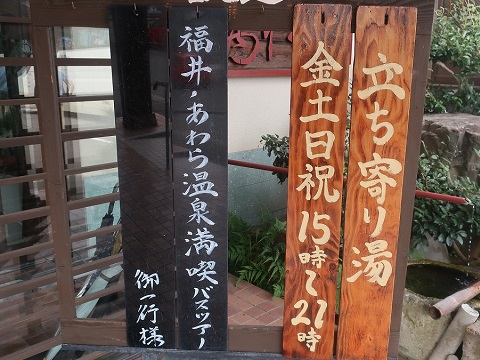 立ち寄り湯
金土日祝 15時～21時
福井・あわら温泉満喫バスツアー
御一行様